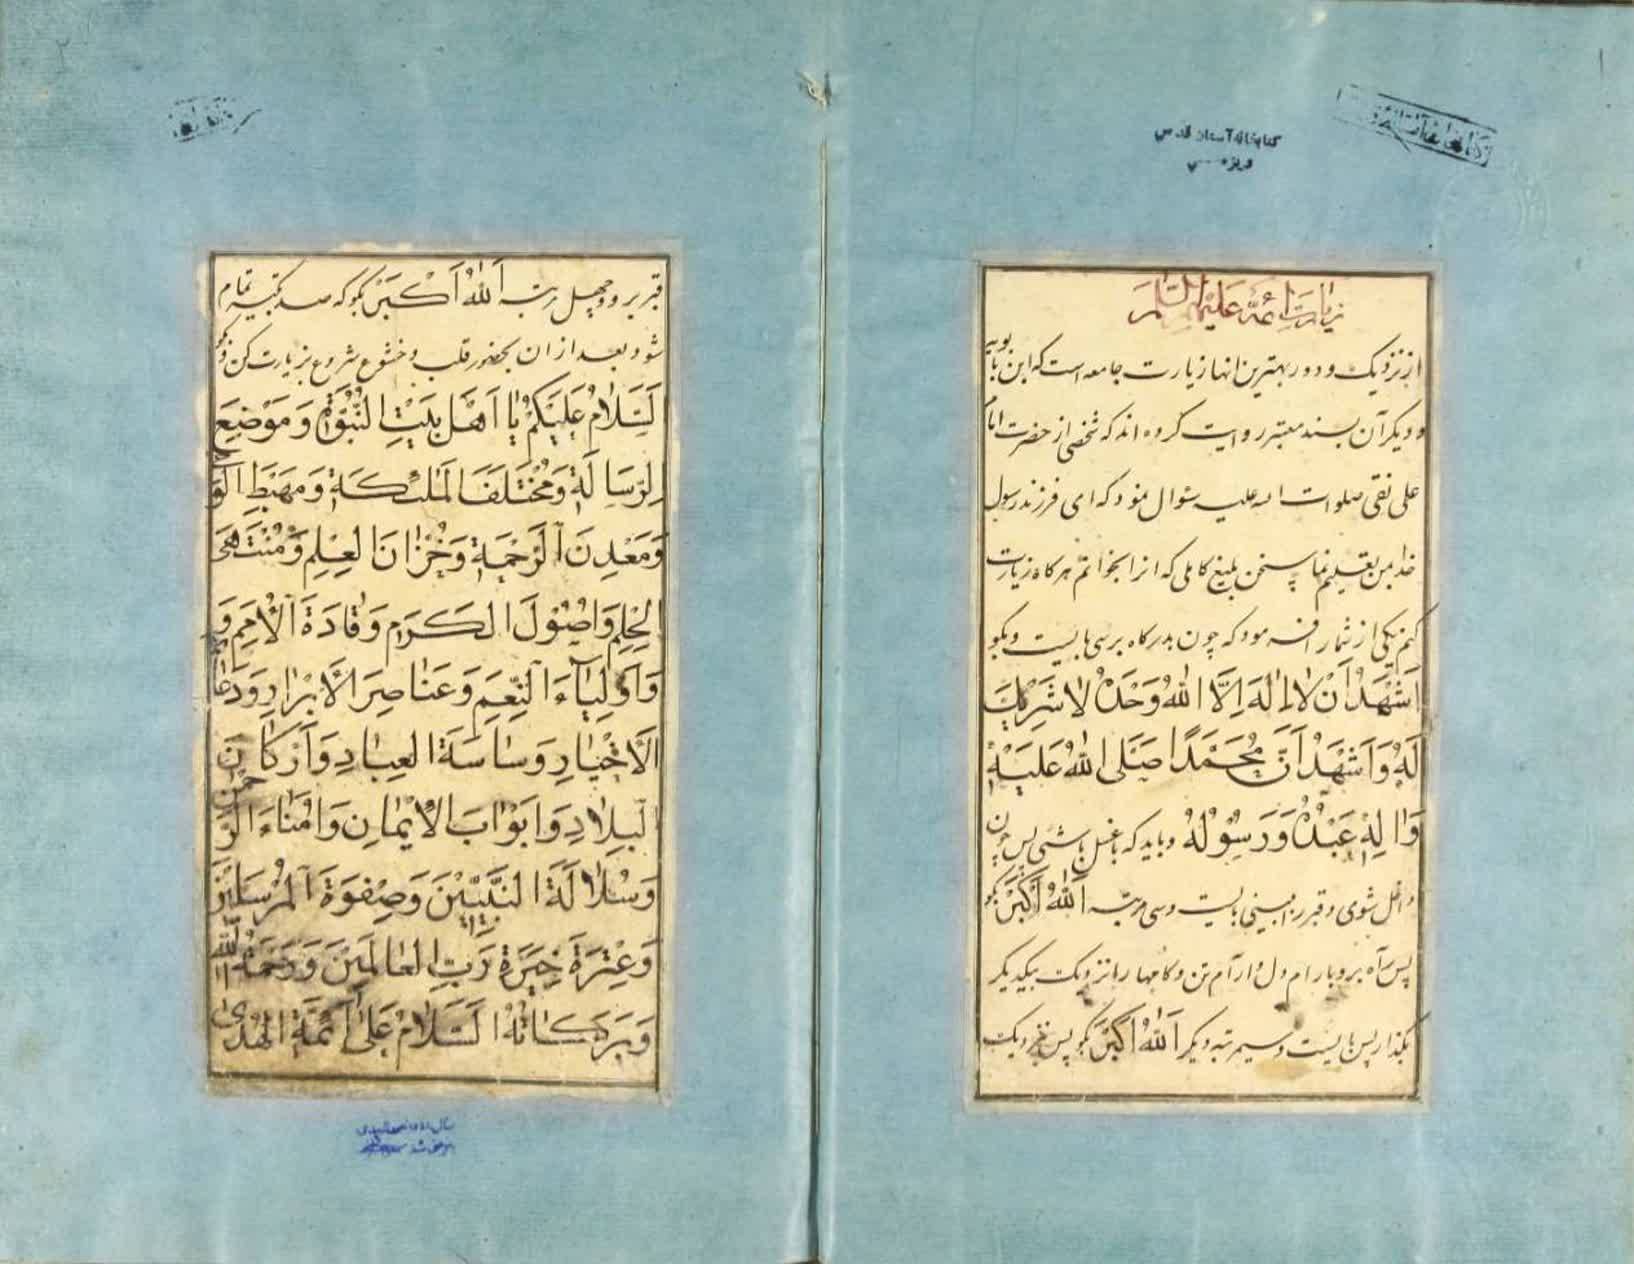 کتابخانه آستان قدس
زیارت ائمه علیهم السلم
از نزدیک و دور بهترین انها زیارت جامعه است که ابن بابویه
و دیگر آن بسند معتبر روایت کرده اند که شخصی از حضرت امام
علی نقی صلوات اله علیه سئوال نمود که ای فرزند رسول
خدا من تعلیم نما سخن بلیغ کاملی که انرا بخوانم هر کاه زیارت
کنم یکی از شمار افرمود که چون بدرکاه برسی بایست و بکو
اَشْهَدُ اَنْ لا اِلهَ اِلَّا اللهُ وَحْدَهُ لا شَرِیْكَ
لَهُ وَ اَشْهَدُ اَنَّ مُحَمَّدًا صَلَّی اللهُ عَلَیْهِ
وَ الِهِ عَبْدُهُ وَ رَسُوْلُهُ و باید که با غسل باشی پس چون
داخل شوی و قبر را ببینی بایست و سی مرتبه اَللهُ اَکْبَرْ بکو
پس راه برو بارام دل و ارام تن و کامها را نزدیک بیکدیکر
بکذار پس بایست و سیمرتبه دیکر اَللهُ اَکْبَرْ بکو پس نزدیک
قبر برو و چهل مرتبه اَللهُ اَکْبَرْ بکو که صد تکبیر تمام
شود بعد از ان بحضور قلب و خشوع شروع بزیارت کن و بکو
اَلسَّلامُ عَلَیْکُمْ یا اَهْلَ بَیْتِ النُّبُوَّةِ وَ مَوْضِعَ
الرِّسالَةِ وَ مُخْتَلَفَ الْمَلئِکَةِ وَ مَهْبَطَ الْوَحْیِ
وَ مَعْدِنَ الرَّحْمَةِ وَ خُزَّانَ الْعِلْمِ وَ مُنْتَهَی
الْحِلْمِ وَ اُصُوْلَ الْکَرَمِ وَ قادَةَ الْاُمَمِ
وَ اَوْلِیاءَ النِّعَمِ وَ عَناصِرَ الْاَبْرارِ وَ دَعائِمَ
الْاَخْیارِ وَ ساسَةَ الْعِبادِ وَ اَرْکانَ
الْبِلادِ وَ اَبْوابَ الْاِیْمانِ وَ اُمَناءَ الرَّحْمنِ
وَ سُلالَةَ النَّبِیّیْنَ وَ صِفْوَةَ الْمُرْسَلِیْنَ
وَ عِتْرَةَ خِیَرَةِ رَبِّ الْعالَمِیْنَ وَ رَحْمَةُ اللهِ
وَ بَرَکاتُهُ اَلسَّلامُ عَلی اَئِمَّةِ الْهُدی